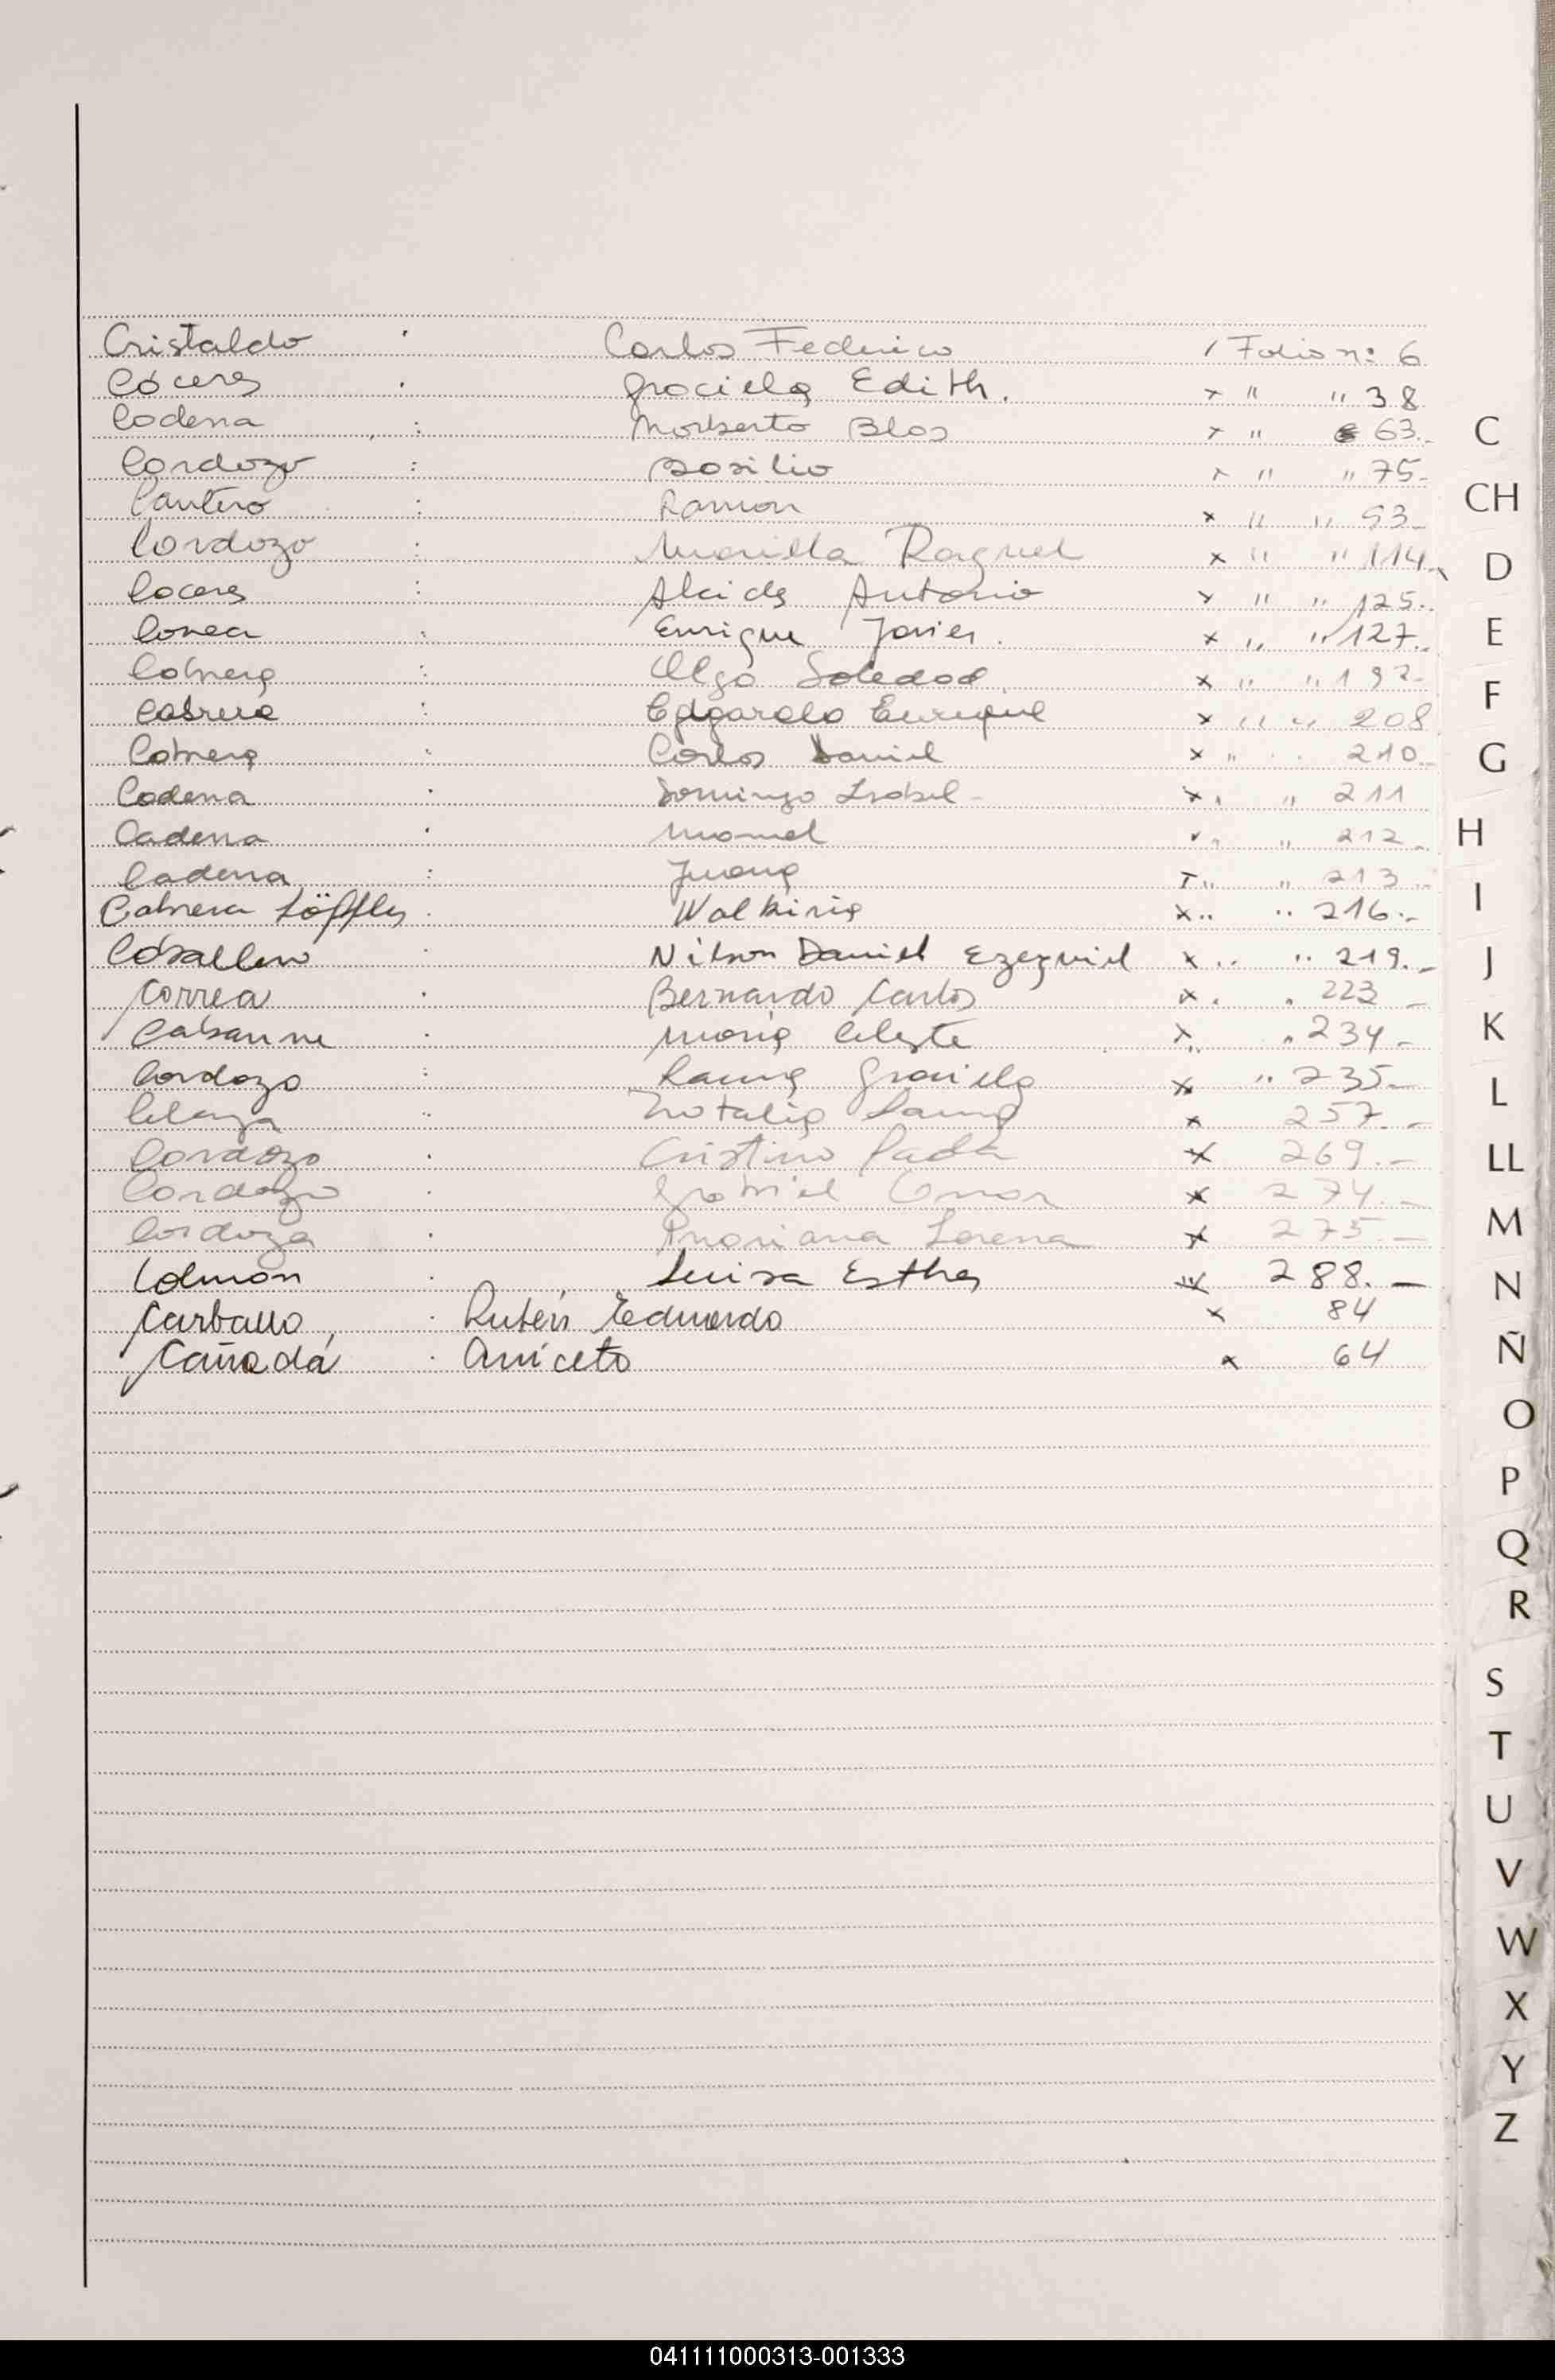 Cristaldo : Carlos Federico / Folio n: 6
Cáceres : Graciela Edith. x " " 38
Cadena : Norberto Blas x " 63.-
Cardozo : Basilio x " " 75-
Cantero : Ramon x " " 93-
Cardozo : Mariella Raquel x " " 114-
Caceres : Alcides Antonio x " " 125.-
Correa : Enrique Javier. x " " 127.-
Cabrera : Olga Soledad x " " 192-
Cabrera : Edgardo Enrique x " " 208
Cabrera : Carlos Daniel x " " 210.-
Cadena : Domingo Isabel - x " " 211
Cadena : Manuel " " 212-
Cadena : Juana " " 213-
Cabrera Löffler : Walkiria x " " 216.-
Caballero : Nilson Daniel Ezequiel x " " 219.-
Correa : Bernardo Carlos x " " 223-
Cabanne : María Celeste x " " 234-
Cardozo : Laura Graciela x " 235-
: Natalia Laura x 257.-
Cardozo : Cristino x 269.-
Cardozo : Gabriel Omar x 274.-
Cardozo : Mariana Lorena x 275-
Colman : Luisa Esther x 288.-
Carballo, : Rubén Eduardo x 84
Cañadá : Aniceto x 64
C
CH
D
E
F
G
H
I
J
K
L
LL
M
N
Ñ
O
P
Q
R
S
T
U
V
W
X
Y
Z
041111000313-001333